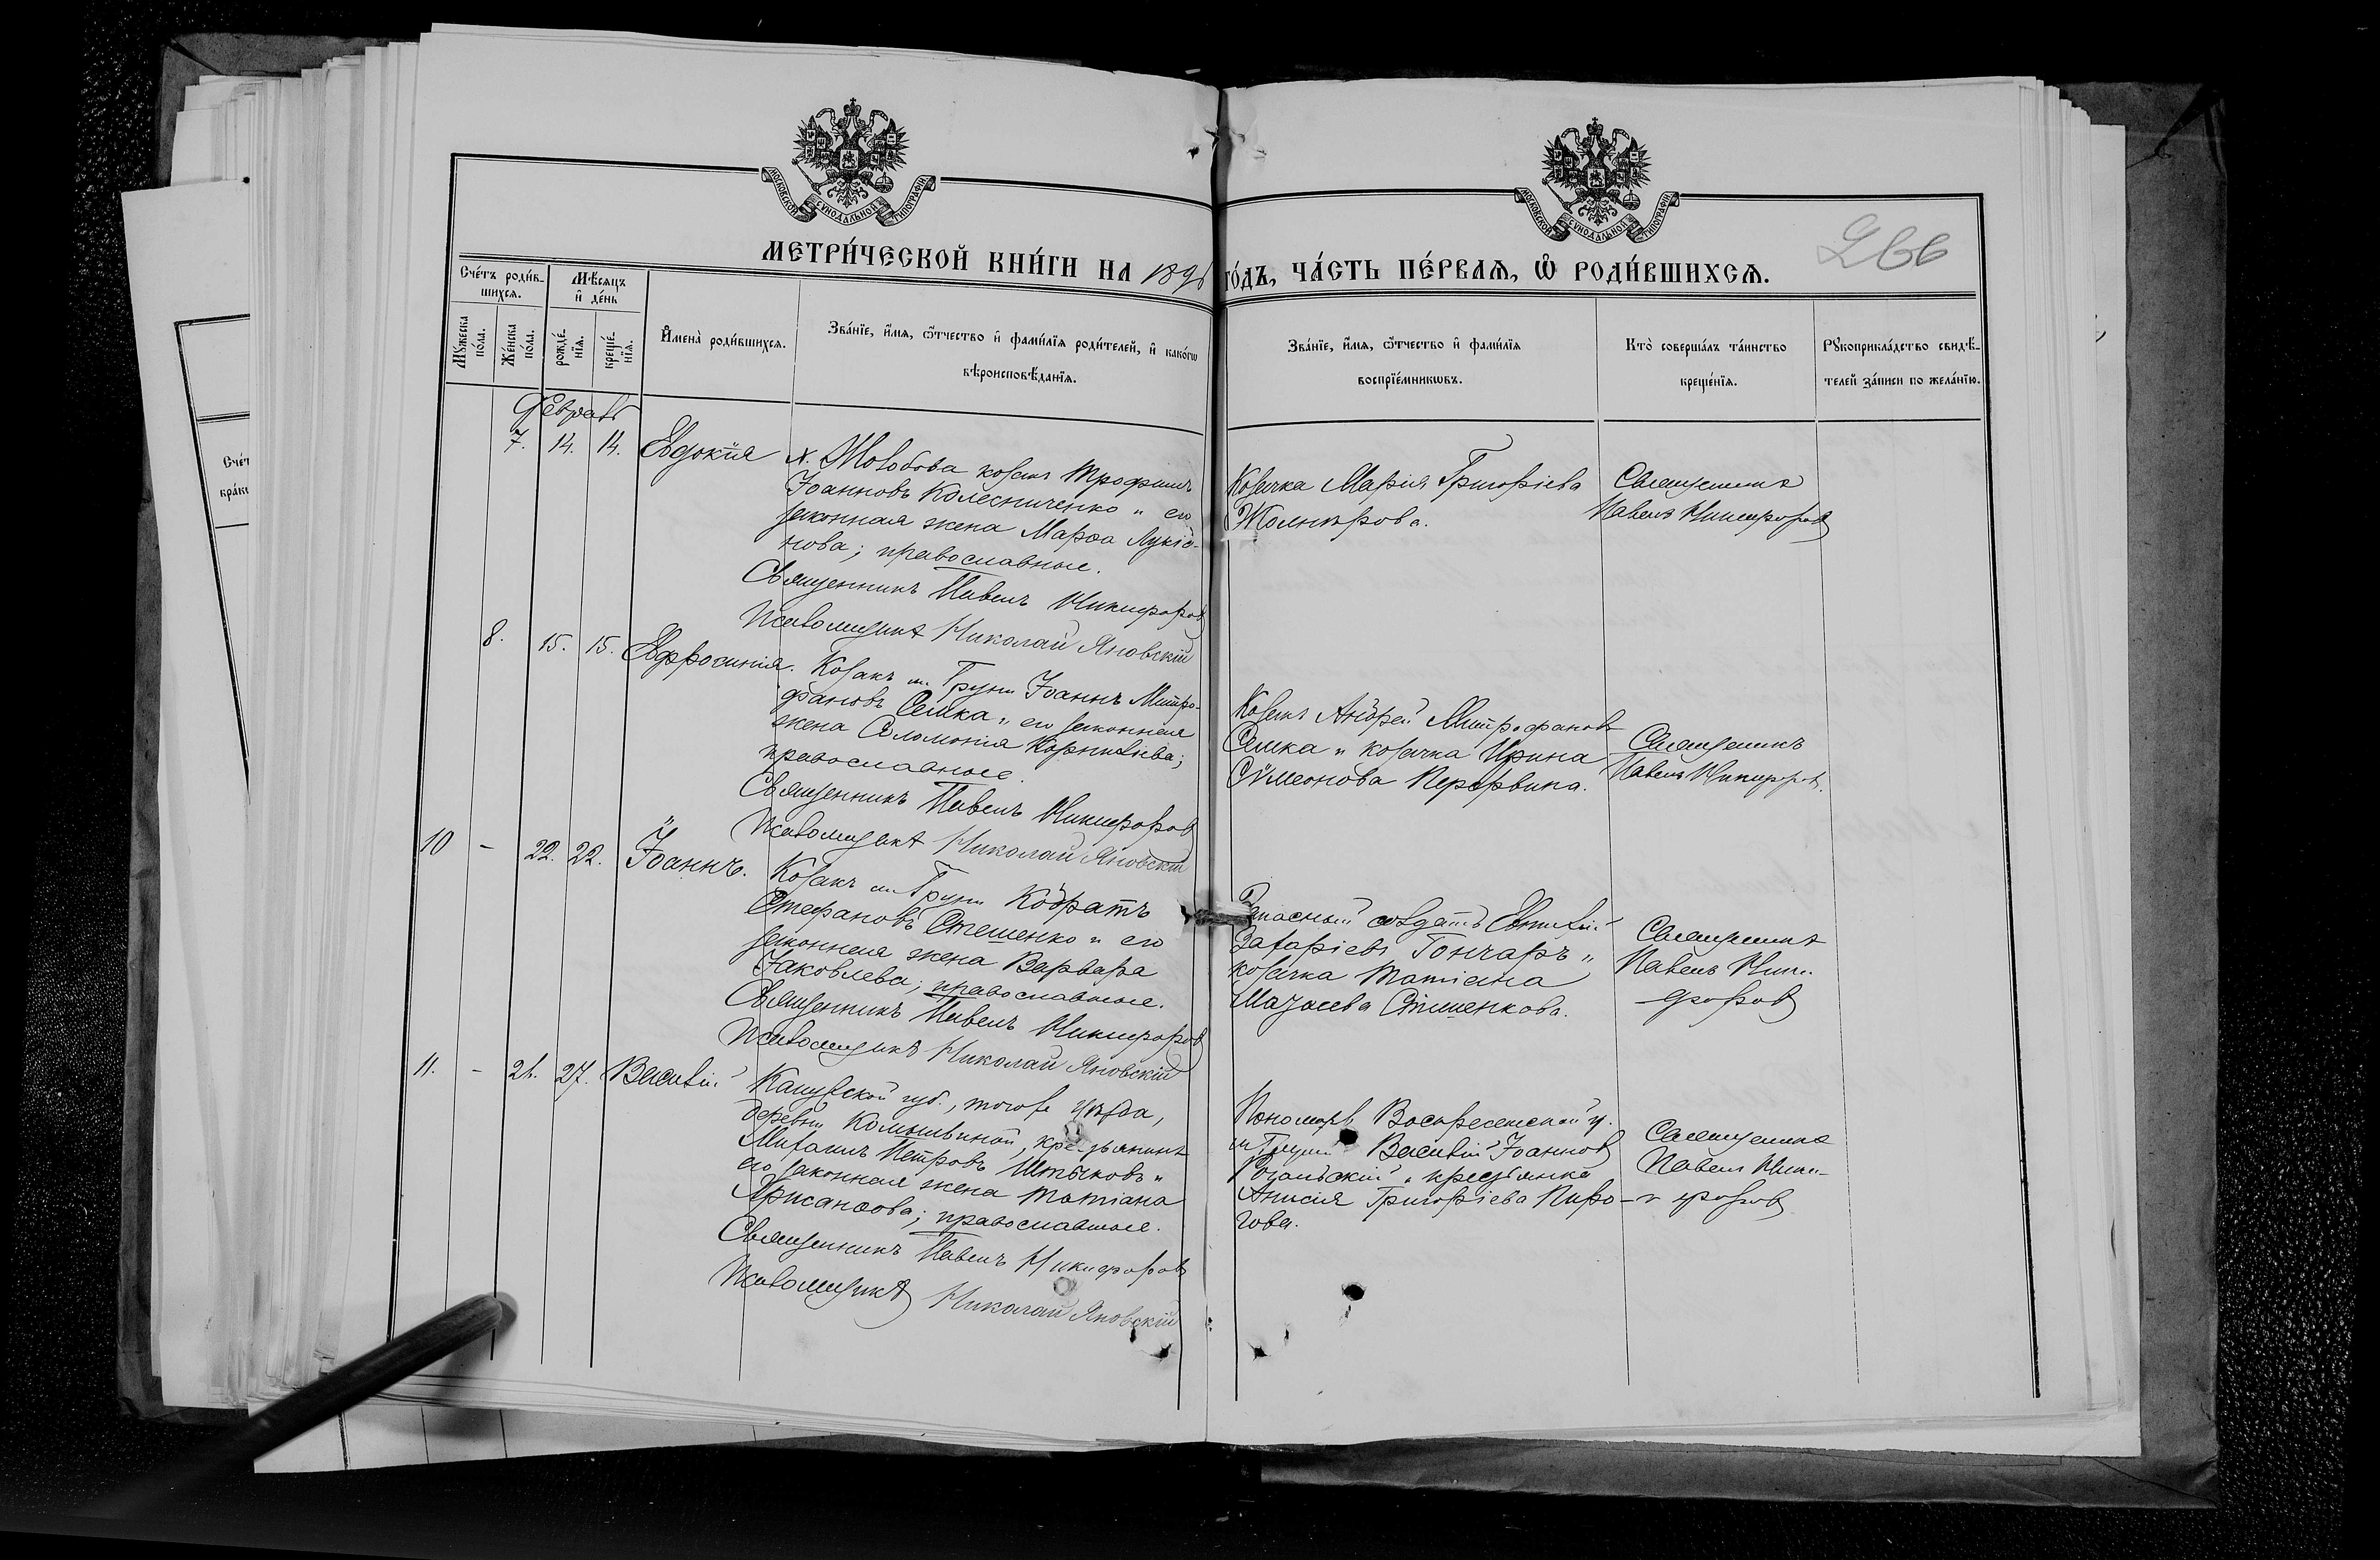 МОСКОВСКОЙ СѴНОДАЛЬНОЙ ТИПОГРАФІИ
МОСКОВСКОЙ СѴНОДАЛЬНОЙ ТИПОГРАФІИ
МЕТРИ́ЧЕСКОЙ КНИ́ГИ НА 189
ГО́ДЪ, ЧА́СТЬ ПЕ́РВАѦ, Ѡ҆ РОДИ́ВШИХСѦ.
266
Сче́тъ роди́в-
шихсѧ.
Мѣ́сѧцъ
и҆ де́нь
Мꙋ́жеска
по́ла.
Же́нска
по́ла.
рожде́-
нїѧ.
креще́-
нїѧ.
И҆мена̀ роди́вшихсѧ.
Зва́нїе, и҆́мѧ, ѻ҆́тчество и҆ фами́лїѧ роди́телей, и҆ како́гѡ
вѣроисповѣ́данїѧ.
Зва́нїе, и҆́мѧ, ѻ҆́тчество и҆ фами́лїѧ
воспрїе́мникѡвъ.
Кто̀ соверша́лъ та́инство
креще́нїѧ.
Рꙋкоприкла́дство свидѣ́-
телей за́писи по жела́нїю.
Февраль
7. 14. 14. Евдокія х. Жолобова козакъ Трофимъ
Іоанновъ Колесниченко и его
законная жена Марѳа Лукіа-
нова; православные.
Священникъ Павелъ Никифоровъ
Псаломщикъ Николай Яновскій
Козачка Марія Григоріева
Священникъ
Павелъ Никифоровъ
8. 15. 15. Евфросинія. Козакъ м. Груни Іоаннъ Митро-
фановъ Семка и его законная
жена Соломонія Корниліева;
православные.
Священникъ Павелъ Никифоровъ
Псаломщикъ Николай Яновскій
Козакъ Андрей Митрофановъ
Семка и козачка Ирина
Сѵмеонова
Священникъ
Павелъ Никифоровъ.
10 - 22. 22. Іоаннъ. Козакъ м. Груни Кодратъ
Стефановъ Стешенко и его
законная жена Варвара
Іаковлева; православные.
Священникъ Павелъ Никифоровъ
Псаломщикъ Николай Яновскій
Запасный солдатъ
Захаріевъ Гончаръ и
козачка Татіана
Стешенкова.
Священникъ
Павелъ Ники-
форовъ
11. - 27. Василій Калужской губ., того же уѣзда,
деревни крестьянинъ
Михаилъ Петровъ и
его законная жена Татіана
Хрисанѳова; православные.
Священникъ Павелъ Никифоровъ
Псаломщикъ Николай Яновскій
Пономарь Воскресенской ц.
м. Груни Василій Іоанновъ
и крестьянка
Анисія Григоріева Пиро-
гова.
Священникъ
Павелъ Ники-
форовъ